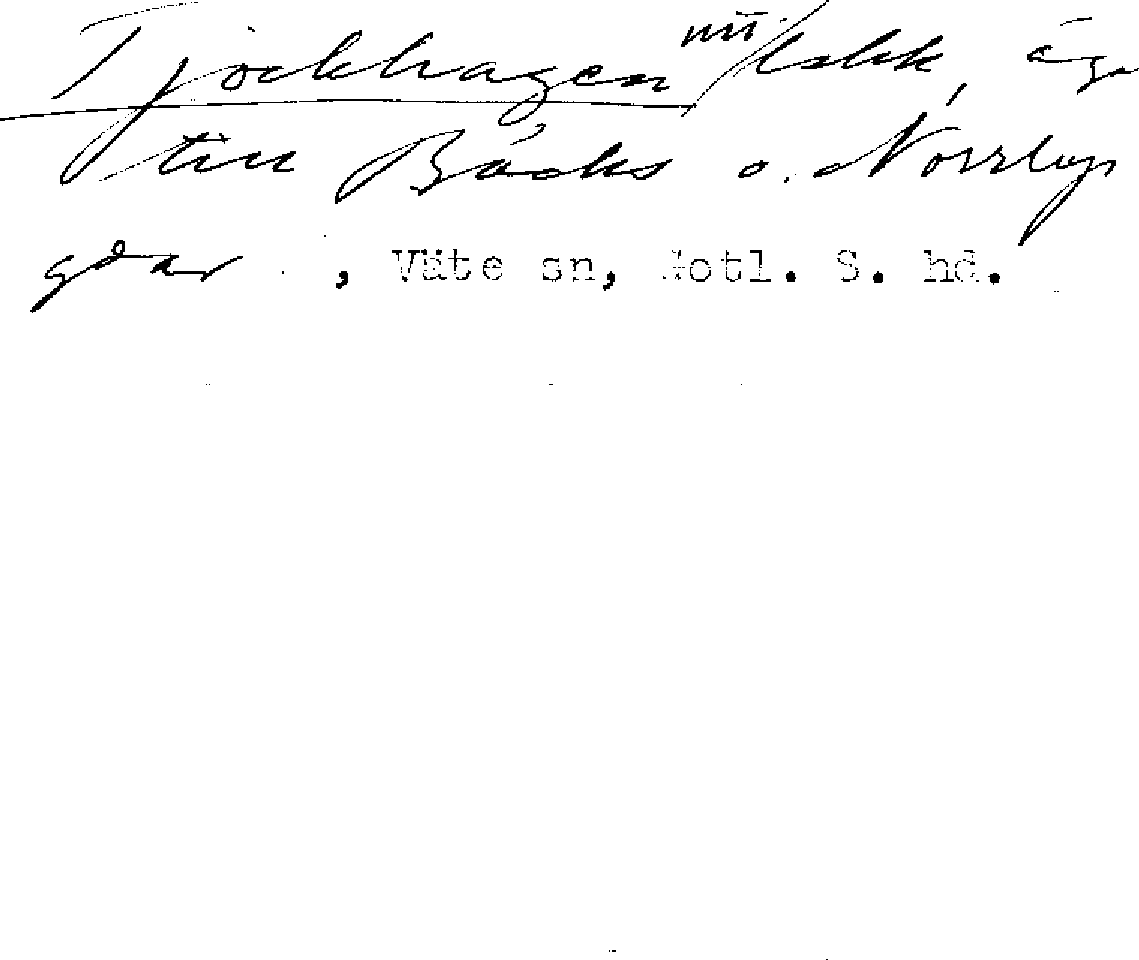 Tjockhagen äg.
till Bäcks o. Norrbys
gdar , Väte sn, Gotl. S. hd.